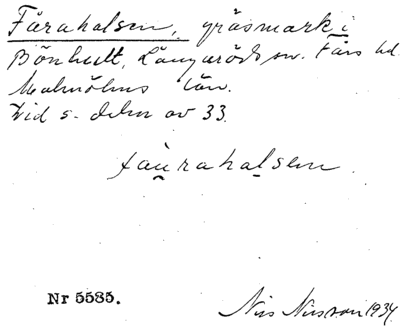 Fårahalsen, gräsmark i
Bönhult, Långaröds sn. Färs hd.
Malmöhus län.
Vid s. delen av 33.
fåurahalsen.
Nr 5585.
Nils Nilsson 1934